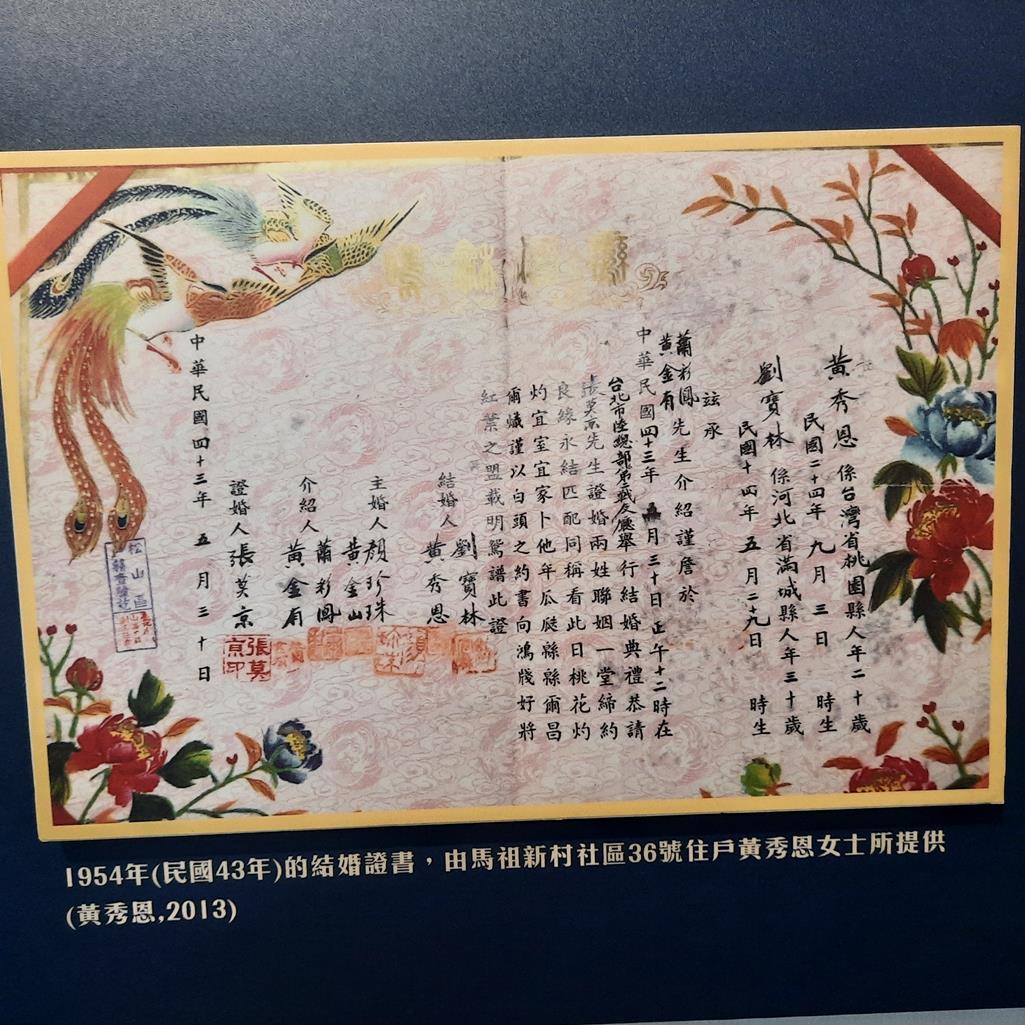 黃秀恩 係台灣省桃園縣人年二十歲
民國二十四年 九月 三日 時生
劉寶林 係河北省滿城縣人年三十歲
民國十四年 五月二十九日 時生
茲承
蕭彩鳳
黃金有 先生介紹謹詹於
中華民國四十三年 月三十日正午十二時在
台北市陸總部第 廳舉行結婚典禮恭請
張莫京先生證婚兩姓聯姻一堂締約
良緣永結匹配同稱看此日桃花灼
灼宜室宜家卜他年瓜瓞縣縣爾昌
爾熾謹以白頭之約書向鴻牋好將
紅葉之盟載明鴛譜此證
結婚人 劉寶林
黃秀恩
主婚人 顏珍珠
黃金山
介紹人 蕭彩鳳
黃金有
證婚人 張莫京
中華民國四十三年 五月三十日
松山區
1954年(民國43年)的結婚證書，由馬祖新村社區36號住戶黃秀恩女士所提供
(黃秀恩,2013)